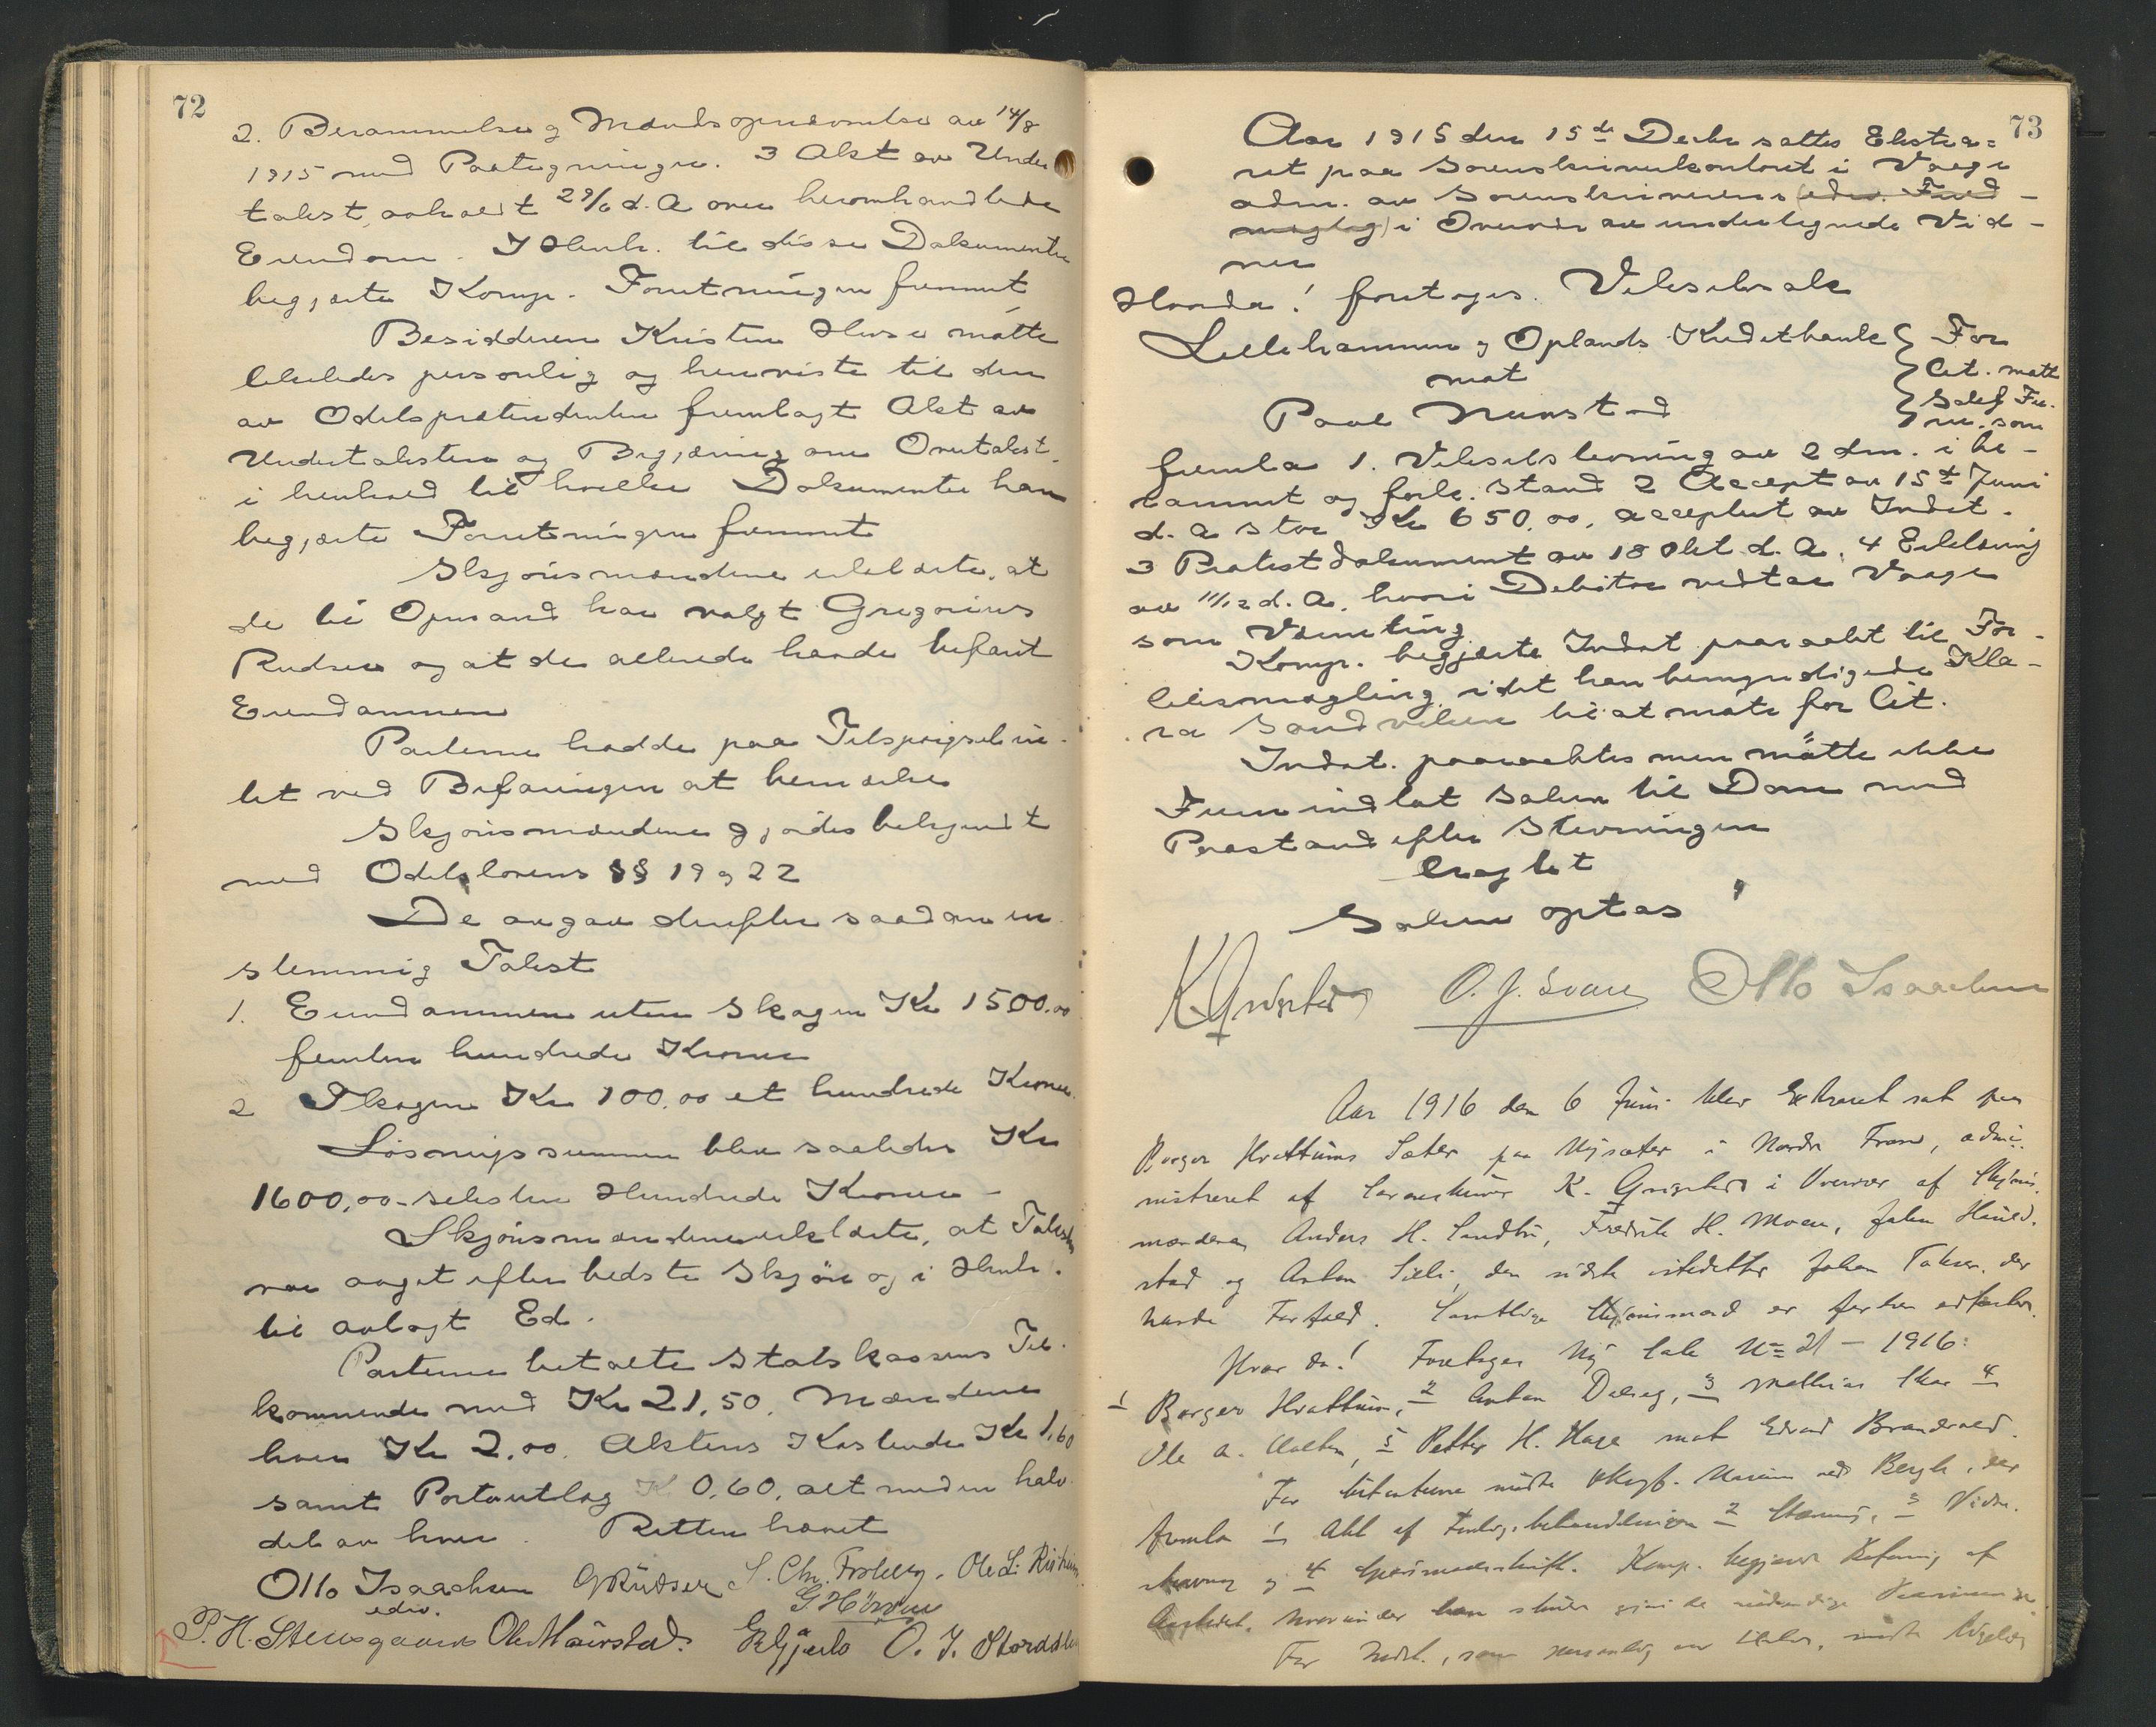 72
2. Berammelse og Mandsopnævnelse av 14/8
1915 med Paategninger. 3 Akt av Under
takst, avholdt 29/6 d. A over heromhandlede
Eiendom. I Henh. til disse Dokumenter
begjærte Komp. Forretningen fremmet
Besidderen Kristen Huse møtte
likeledes personlig og henviste til den
av Odelsprætendenten fremlagt Akt av
Undertaksten og Begjæring om Overtakst
i henhold til hvilke Dokumenter han
begjærte Forretningen fremmet
Skjønsmændene erklærte, at
de til Opmand har valgt Gregorius
Rudser og at de allerede havde befaret
Eiendommen
Parterne hadde paa Tilspørgsel in-
tet ved Befaringen at bemerke
Skjønsmændene gjordes bekjendt
med Odelslovens §§ 19 og 22
De avgav derefter saadan en
stemmig Takst
1. Eiendommen uten Skogen Kr 1500.00
femten hundrede Kroner
2 Skogen Kr 100.00 et hundrede Kroner.
Løsningssummen blev saaledes Kr
1600,00 - seksten Hundrede Kroner -
Skjønsmændene erklærte, at Taksten
var avgit efter bedste Skjøn og i Henh.
til avlagt Ed.
Parterne betalte Statskassens Til-
kommende med Kr 21,50, Mændene
hver Kr 2.00. Aktens Kostende Kr 1,60
samt Portoutlæg K 0,60, alt med en halv-
del av hver. Retten hævet
Otto Isaachsen G Rudser S. Chr. Froberg. Ole L.
edsv. G. Hörven
P. H. Steensgaard O. J.
73
Aar 1915 den 15de Decbr sattes Ekstra=
ret paa Sorenskriverkontoret i Vaage
adm. av Sorenskriverens (edsv. Fuld-
mægtig) i Overvær av undertegnede Vid-
ner
Hvorda! foretages. Vekselsak
Lillehammer og Oplands Kreditbank
mot
Paul
For
Cit. møtte
Salsf. Fu-
re. som
fremla 1. Vekselstevning av 2 dm. i be-
rammet og fork. Stand 2 Accept av 15de Juni
d. A stor Kr 650.00, acceptert av Indst.
3 Protestdokument av 18 Okt d. A. 4 Erklæring
av 11/12 d. A. hvori Debitor vedtar Vaage
som Værneting.
Komp. begjærte Indst paaraabt til For-
liksmægling, idet han bemyndigede Kla-
ra Sandviken til at møte for Cit.
Indst. paaraabtes men møtte ikke
Furu indlot Saken til Dom med
Paastand efter Stevningen
Eragtet
Saken optas"
K Grivsted O. J. Svare Otto Isaachsen
Aar 1916 den 6 Juni blev Extraret sat paa
Borger Hvattums Sæter paa Nysæter i Nordre Fron, admi-
nistreret af Sorenskriver K. i Overvær af Skjøns-
mændene Anders H. Sandbu, Fredrik H. Moen, Johan
stad og Anton, den sidste istedetfor Johan der
havde Forfald. Samtlige Skjønsmænd er før
Hvor da! Foretages Ny Sak No 21 - 1916:
1 Borger Hvattum, 2 Anton, 3 Mathias 4
Ole A., 5 Petter H. Hage mot Edvard Brandvold.
For Citanterne mødte Bergh, der
fremla 1 Akt af 2 Stævning, 3 Vidne-
stævning og 4 Komp. begjærte Befaring af
Aastedet, hvorunder han
For Indst., som personlig var tilstede, mødte